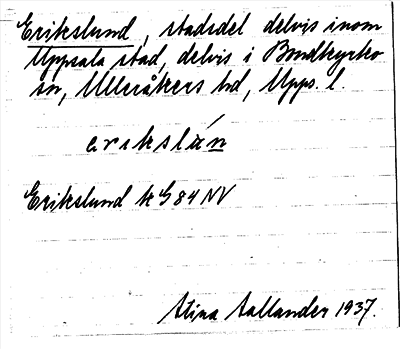 Erikslund, stadsdel delvis inom
Uppsala stad, delvis i Bondkyrko
sn, Ulleråkers hd, Upps. l.
erikslún
Erikslund k G 84 NV
Stina Aallander 1937.